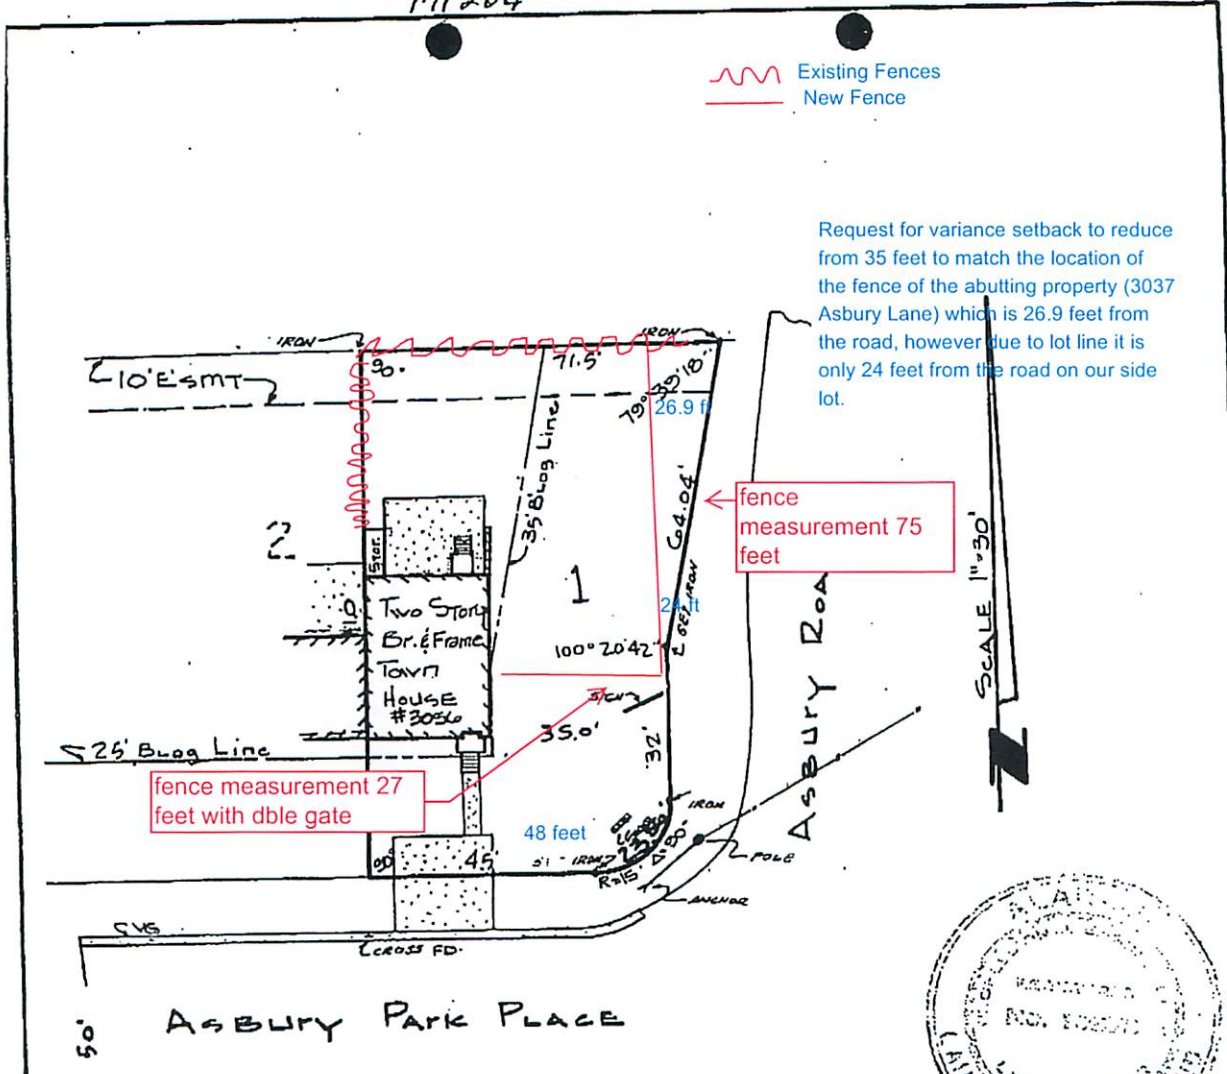 Existing Fences
New Fence
Request for variance setback to reduce
from 35 feet to match the location of
the fence of the abutting property (3037
Asbury Lane) which is 26.9 feet from
the road, however due to lot line it is
only 24 feet from the road on our side
lot.
IRON
IRON
10' E'SMT
90°
71.5'
79° 39' 18"
26.9 f
35' Bldg Line
64.04'
fence
measurement 75
feet
2
Stor.
1
24 ft
SET IRON
Two Story
Br. & Frame
Town
House
#3056
100° 20' 42"
SIGN
35.0'
32'
25' Bldg Line
fence measurement 27
feet with dble gate
48 feet
IRON
90°
45'
IRON
R=15'
Δ 90°
POLE
ANCHOR
CROSS FD.
Asbury Road
SCALE 1"=30'
50'
Asbury Park Place